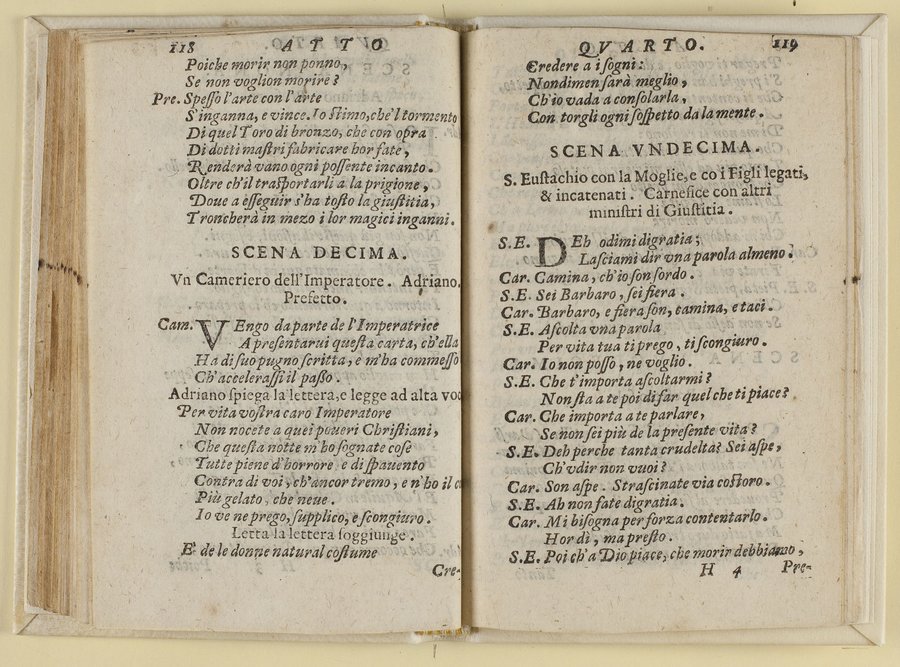 118 ATTO
Poiche morir non ponno,
Se non voglion morire?
Pre. Speſſo l'arte con l'arte
S'inganna, e vince. Io ſtimo, che'l tormento
Di quel Toro di bronzo, che con opra
Di dotti maſtri fabricare hor fate,
Renderà vano ogni poſſente incanto.
Oltre ch'il traſportarli a la prigione,
Doue a eſſeguir s'ha toſto la giuſtitia,
Troncherà in mezo i lor magici inganni.
SCENA DECIMA.
Vn Cameriero dell'Imperatore. Adriano.
Prefetto.
Cam. VEngo da parte de l'Imperatrice
A preſentarui queſta carta, ch'ella
Ha di ſuo pugno ſcritta, e m'ha commeſſo
Ch'acceleraſſi il paſſo.
Adriano ſpiega la lettera, e legge ad alta voc
Per vita voſtra caro Imperatore
Non nocete a quei poueri Chriſtiani,
Che queſta notte m'ho ſognate coſe
Tutte piene d'horrore, e di ſpauento
Contra di voi, ch'ancor tremo, e n'ho il
Più gelato, che neue.
Io ve ne prego, ſupplico, e ſcongiuro.
Letta la lettera ſoggiunge.
E' de le donne natural coſtume
Cre-
QVARTO. 119
Credere a i ſogni:
Nondimen ſarà meglio,
Ch'io vada a conſolarla,
Con torgli ogni ſoſpetto da la mente.
SCENA VNDECIMA.
S. Euſtachio con la Moglie, e co i Figli legati,
& incatenati. Carnefice con altri
miniſtri di Giuſtitia.
S.E. DEh odimi digratia;
Laſciami dir vna parola almeno.
Car. Camina, ch'io ſon ſordo.
S.E. Sei Barbaro, ſei fiera.
Car. Barbaro, e fiera ſon, camina, e taci.
S.E. Aſcolta vna parola
Per vita tua ti prego, ti ſcongiuro.
Car. Io non poſſo, ne voglio.
S.E. Che t'importa aſcoltarmi?
Non ſta a te poi di far quel che ti piace?
Car. Che importa a te parlare,
Se non ſei più de la preſente vita?
S.E. Deh perche tanta crudeltà? Sei aſpe,
Ch'vdir non vuoi?
Car. Son aſpe. Straſcinate via coſtoro.
S.E. Ah non fate digratia.
Car. Mi biſogna per forza contentarlo.
Hor dì, ma preſto.
S.E. Poi ch'a Dio piace, che morir debbiamo,
H 4 Pre-